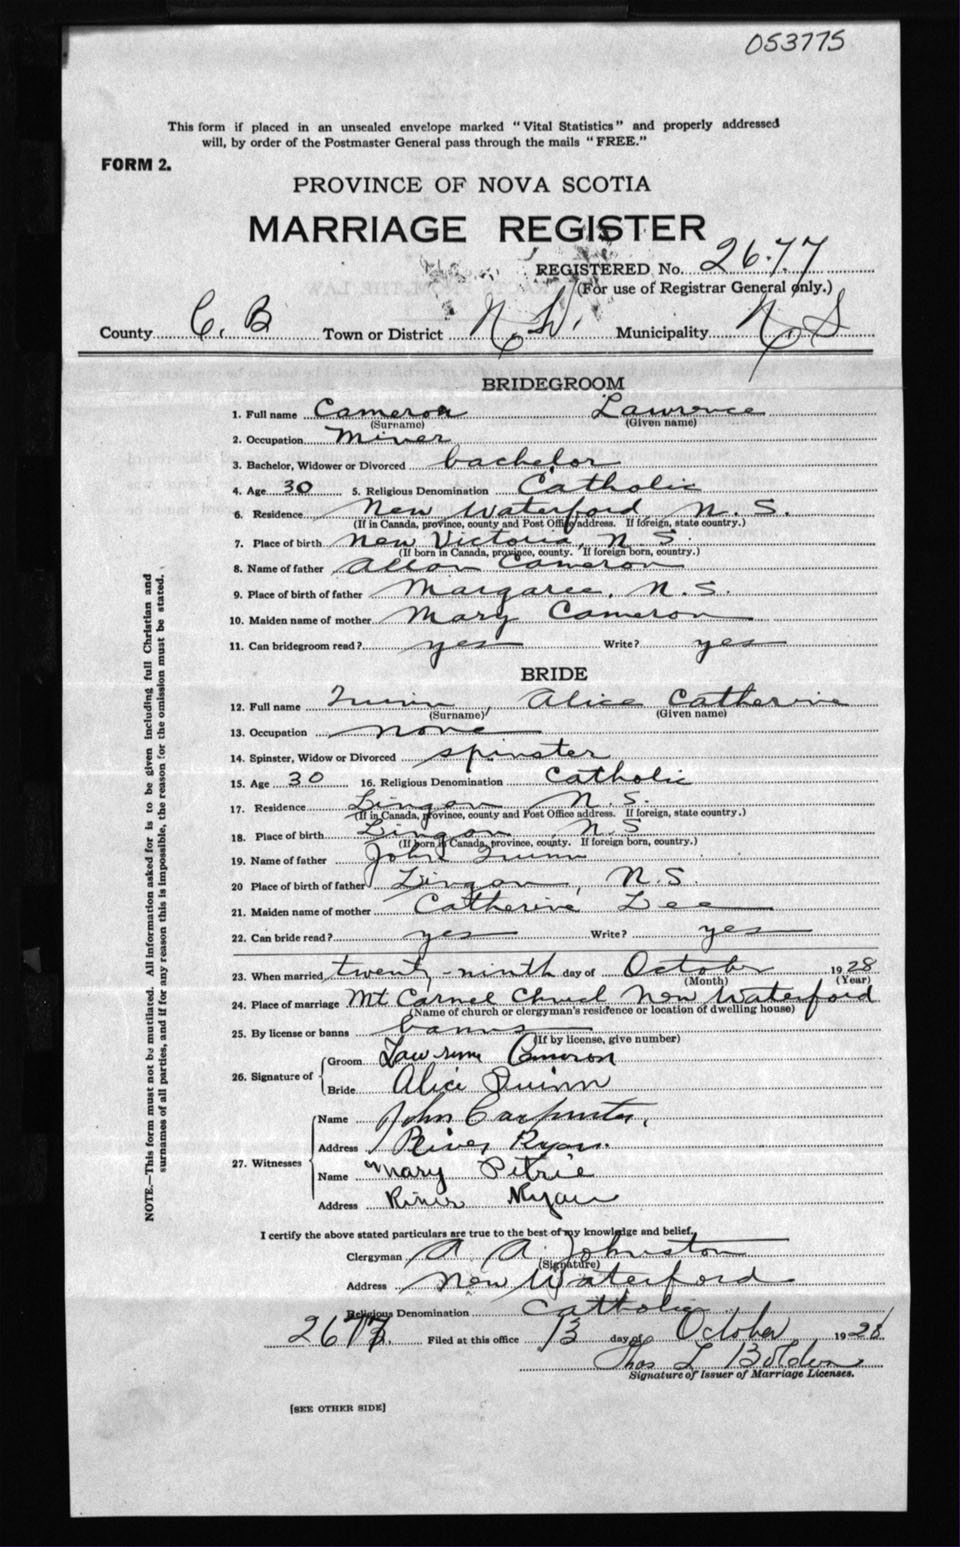 053775
This form if placed in an unsealed envelope marked "Vital Statistics" and properly addressed
will, by order of the Postmaster General pass through the mails "FREE."
FORM 2.
PROVINCE OF NOVA SCOTIA
MARRIAGE REGISTER
REGISTERED No. 2677
(For use of Registrar General only.)
County C. B Town or District N. W. Municipality N. S
BRIDEGROOM
1. Full name Cameron Lawrence
(Surname) (Given name)
2. Occupation Miner
3. Bachelor, Widower or Divorced bachelor
4. Age 30 5. Religious Denomination Catholic
6. Residence New Waterford N. S.
(If in Canada, province, county and Post Office address. If foreign, state country.)
7. Place of birth New Victoria, N. S.
(If born in Canada, province, county. If foreign born, country.)
8. Name of father Allan Cameron
9. Place of birth of father Margaree, N. S.
10. Maiden name of mother Mary Cameron
11. Can bridegroom read? yes Write? yes
BRIDE
12. Full name Quinn, Alice Catherine
(Surname) (Given name)
13. Occupation none
14. Spinster, Widow or Divorced spinster
15. Age 30 16. Religious Denomination Catholic
17. Residence Lingan N. S.
(If in Canada, province, county and Post Office address. If foreign, state country.)
18. Place of birth Lingan, N. S
(If born in Canada, province, county. If foreign born, country.)
19. Name of father John Quinn
20 Place of birth of father Lingan, N. S.
21. Maiden name of mother Catherine Lee
22. Can bride read? yes Write? yes
23. When married twenty-ninth day of October 1928
(Month) (Year)
24. Place of marriage Mt Carmel Church New Waterford
(Name of church or clergyman's residence or location of dwelling house)
25. By license or banns banns
(If by license, give number)
26. Signature of Groom Lawrence Cameron
Bride Alice Quinn
27. Witnesses Name John Carpenter,
Address River Ryan.
Name Mary Petrie
Address River Ryan
I certify the above stated particulars are true to the best of my knowledge and belief,
Clergyman A A. Johnston
(Signature)
Address New Waterford
Religious Denomination Catholic
Filed at this office 13 day of October 1928
Thos L Bolden
Signature of Issuer of Marriage Licenses.
[SEE OTHER SIDE]
NOTE.—This form must not be mutilated. All information asked for is to be given including full Christian and
surnames of all parties, and if for any reason this is impossible, the reason for the omission must be stated.